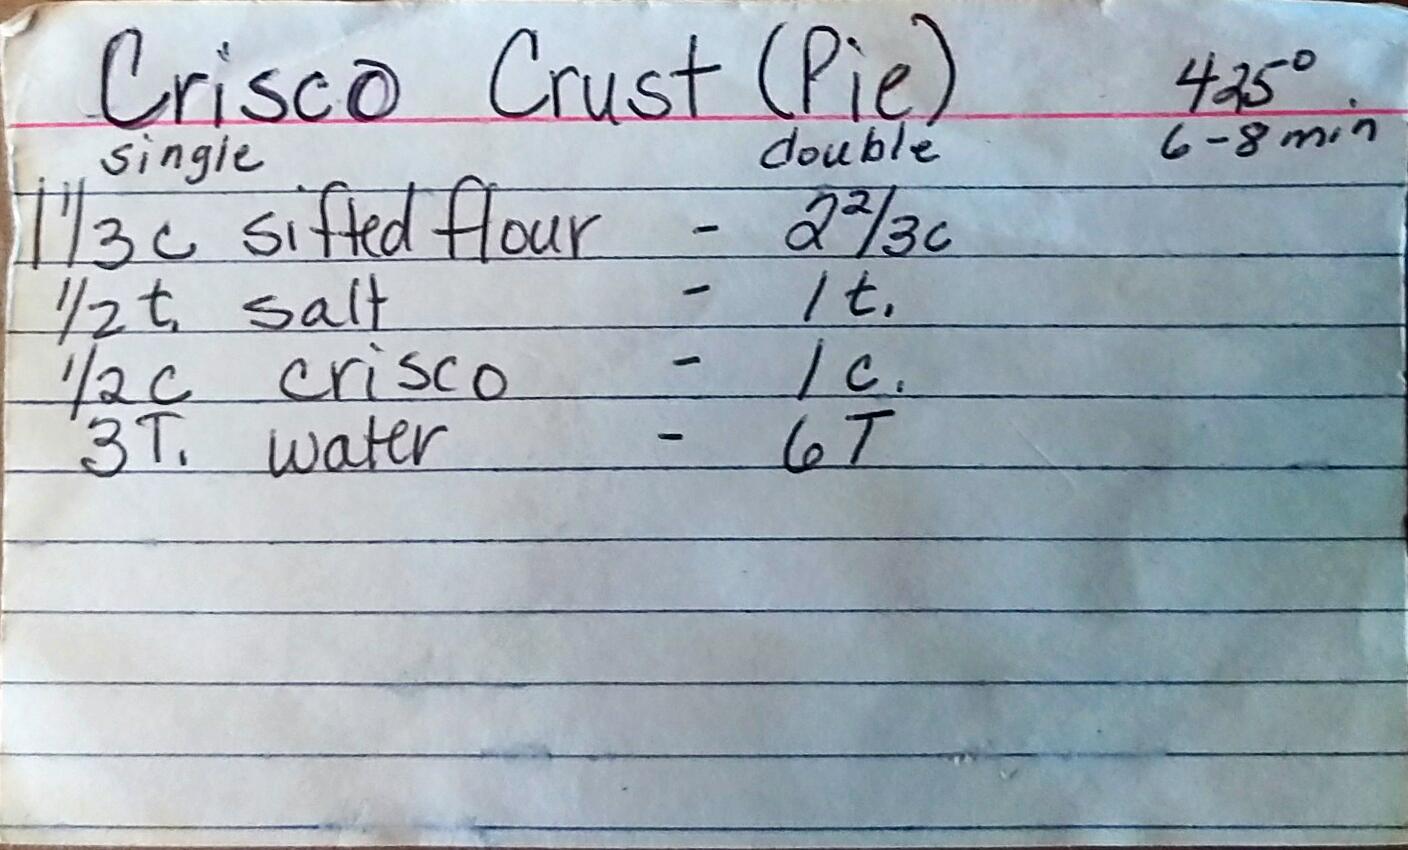 Crisco Crust (Pie) 425°
single double 6-8 min
1 1/3 c sifted flour - 2 2/3 c
1/2 t. salt - 1 t.
1/2 c crisco - 1 c.
3 T. water - 6 T